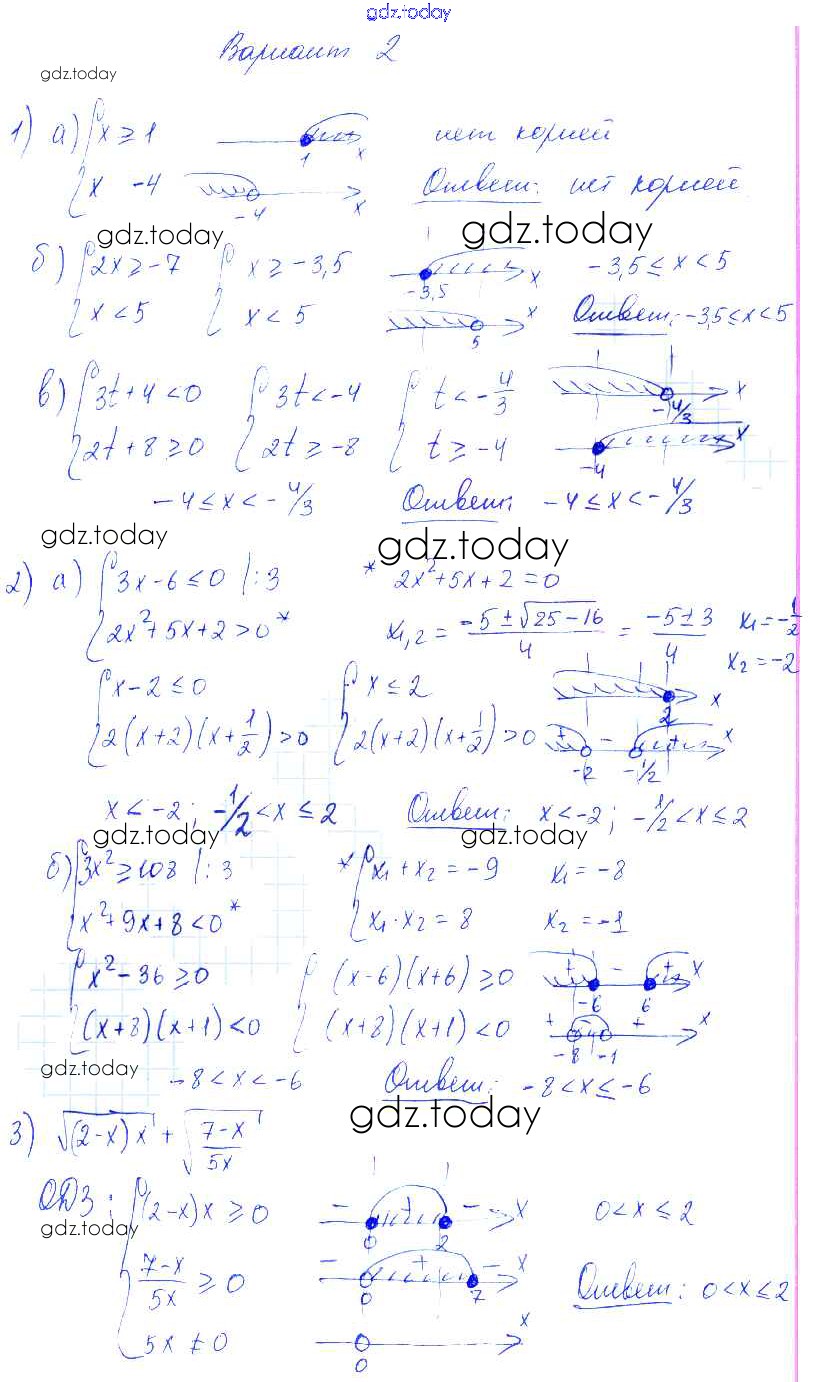 gdz.today
Вариант 2
gdz.today
1) а) { x ≥ 1    1    x    нет корней
{ x   -4    -4    x    Ответ: нет корней
gdz.today    gdz.today
б) { 2x ≥ -7    { x ≥ -3,5    -3,5    x    -3,5 ≤ x < 5
{ x < 5    { x < 5    5    x    Ответ: -3,5 ≤ x < 5
в) { 3t + 4 < 0    { 3t < -4    { t < -4/3    -4/3    x
{ 2t + 8 ≥ 0    { 2t ≥ -8    { t ≥ -4    -4    x
-4 ≤ x < -4/3    Ответ: -4 ≤ x < -4/3
gdz.today    gdz.today
2) а) { 3x - 6 ≤ 0 |:3    * 2x² + 5x + 2 = 0
{ 2x² + 5x + 2 > 0 *    x₁,₂ = (-5 ± √(25 - 16))/4 = (-5 ± 3)/4    x₁ = -1/2
x₂ = -2
{ x - 2 ≤ 0    { x ≤ 2    2    x
{ 2(x + 2)(x + 1/2) > 0    { 2(x + 2)(x + 1/2) > 0    + - +    -2    -1/2    x
x < -2; -1/2 < x ≤ 2    Ответ: x < -2; -1/2 < x ≤ 2
gdz.today    gdz.today
б) { 3x² ≥ 108 |:3    * { x₁ + x₂ = -9    x₁ = -8
{ x² + 9x + 8 < 0 *    { x₁ · x₂ = 8    x₂ = -1
{ x² - 36 ≥ 0    { (x - 6)(x + 6) ≥ 0    + - +    -6    6    x
{ (x + 8)(x + 1) < 0    { (x + 8)(x + 1) < 0    + - +    -8    -1    x
gdz.today
-8 < x < -6    Ответ: -8 < x ≤ -6
gdz.today
3) √((2 - x)x) + √((7 - x)/5x)
ОДЗ: { (2 - x)x ≥ 0    - + -    0    2    x    0 < x ≤ 2
gdz.today
{ (7 - x)/5x ≥ 0    - + -    0    7    x    Ответ: 0 < x ≤ 2
{ 5x ≠ 0    0    x